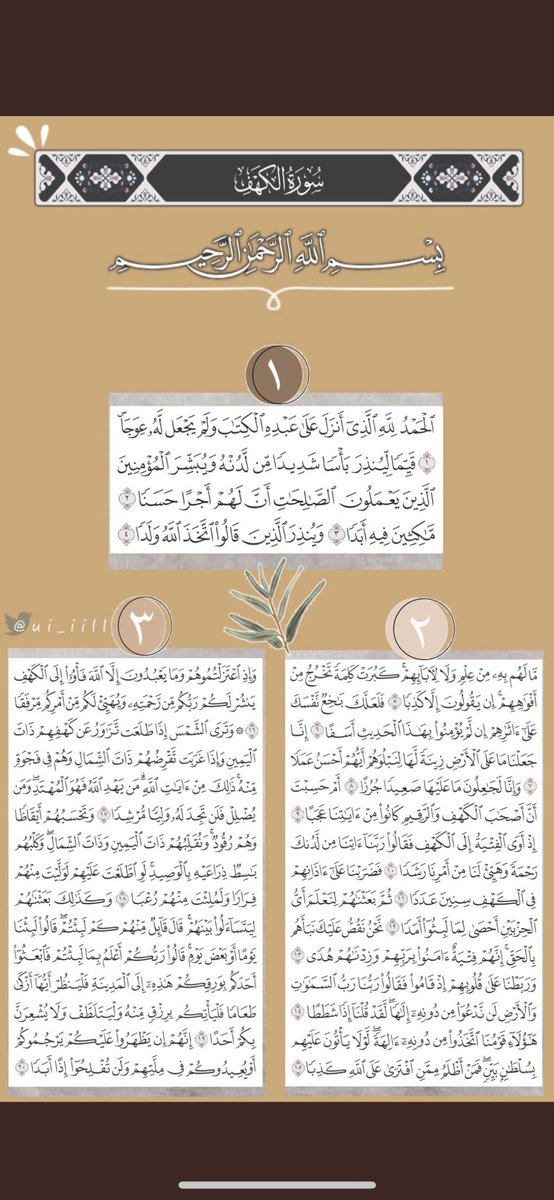 سُورَةُ الكَهْفِ
بِسْمِ ٱللَّهِ ٱلرَّحْمَٰنِ ٱلرَّحِيمِ
١
ٱلْحَمْدُ لِلَّهِ ٱلَّذِىٓ أَنزَلَ عَلَىٰ عَبْدِهِ ٱلْكِتَٰبَ وَلَمْ يَجْعَل لَّهُۥ عِوَجَاۜ
١ قَيِّمًا لِّيُنذِرَ بَأْسًا شَدِيدًا مِّن لَّدُنْهُ وَيُبَشِّرَ ٱلْمُؤْمِنِينَ
ٱلَّذِينَ يَعْمَلُونَ ٱلصَّٰلِحَٰتِ أَنَّ لَهُمْ أَجْرًا حَسَنًا ٢
مَّٰكِثِينَ فِيهِ أَبَدًا ٣ وَيُنذِرَ ٱلَّذِينَ قَالُوا۟ ٱتَّخَذَ ٱللَّهُ وَلَدًا ٤
٢
مَّا لَهُم بِهِۦ مِنْ عِلْمٍ وَلَا لِءَابَآئِهِمْ ۚ كَبُرَتْ كَلِمَةً تَخْرُجُ مِنْ
أَفْوَٰهِهِمْ ۚ إِن يَقُولُونَ إِلَّا كَذِبًا ٥ فَلَعَلَّكَ بَٰخِعٌ نَّفْسَكَ
عَلَىٰٓ ءَاثَٰرِهِمْ إِن لَّمْ يُؤْمِنُوا۟ بِهَٰذَا ٱلْحَدِيثِ أَسَفًا ٦ إِنَّا
جَعَلْنَا مَا عَلَى ٱلْأَرْضِ زِينَةً لَّهَا لِنَبْلُوَهُمْ أَيُّهُمْ أَحْسَنُ عَمَلًا
٧ وَإِنَّا لَجَٰعِلُونَ مَا عَلَيْهَا صَعِيدًا جُرُزًا ٨ أَمْ حَسِبْتَ
أَنَّ أَصْحَٰبَ ٱلْكَهْفِ وَٱلرَّقِيمِ كَانُوا۟ مِنْ ءَايَٰتِنَا عَجَبًا ٩
إِذْ أَوَى ٱلْفِتْيَةُ إِلَى ٱلْكَهْفِ فَقَالُوا۟ رَبَّنَآ ءَاتِنَا مِن لَّدُنكَ
رَحْمَةً وَهَيِّئْ لَنَا مِنْ أَمْرِنَا رَشَدًا ١٠ فَضَرَبْنَا عَلَىٰٓ ءَاذَانِهِمْ
فِى ٱلْكَهْفِ سِنِينَ عَدَدًا ١١ ثُمَّ بَعَثْنَٰهُمْ لِنَعْلَمَ أَىُّ
ٱلْحِزْبَيْنِ أَحْصَىٰ لِمَا لَبِثُوٓا۟ أَمَدًا ١٢ نَّحْنُ نَقُصُّ عَلَيْكَ نَبَأَهُم
بِٱلْحَقِّ ۚ إِنَّهُمْ فِتْيَةٌ ءَامَنُوا۟ بِرَبِّهِمْ وَزِدْنَٰهُمْ هُدًى ١٣
وَرَبَطْنَا عَلَىٰ قُلُوبِهِمْ إِذْ قَامُوا۟ فَقَالُوا۟ رَبُّنَا رَبُّ ٱلسَّمَٰوَٰتِ
وَٱلْأَرْضِ لَن نَّدْعُوَا۟ مِن دُونِهِۦٓ إِلَٰهًا ۖ لَّقَدْ قُلْنَآ إِذًا شَطَطًا ١٤
هَٰٓؤُلَآءِ قَوْمُنَا ٱتَّخَذُوا۟ مِن دُونِهِۦٓ ءَالِهَةً ۖ لَّوْلَا يَأْتُونَ عَلَيْهِم
بِسُلْطَٰنٍۭ بَيِّنٍ ۖ فَمَنْ أَظْلَمُ مِمَّنِ ٱفْتَرَىٰ عَلَى ٱللَّهِ كَذِبًا ١٥
@ui_iill
٣
وَإِذِ ٱعْتَزَلْتُمُوهُمْ وَمَا يَعْبُدُونَ إِلَّا ٱللَّهَ فَأْوُۥٓا۟ إِلَى ٱلْكَهْفِ
يَنشُرْ لَكُمْ رَبُّكُم مِّن رَّحْمَتِهِۦ وَيُهَيِّئْ لَكُم مِّنْ أَمْرِكُم مِّرْفَقًا
١٦ ۞ وَتَرَى ٱلشَّمْسَ إِذَا طَلَعَت تَّزَٰوَرُ عَن كَهْفِهِمْ ذَاتَ
ٱلْيَمِينِ وَإِذَا غَرَبَت تَّقْرِضُهُمْ ذَاتَ ٱلشِّمَالِ وَهُمْ فِى فَجْوَةٍ
مِّنْهُ ۚ ذَٰلِكَ مِنْ ءَايَٰتِ ٱللَّهِ ۗ مَن يَهْدِ ٱللَّهُ فَهُوَ ٱلْمُهْتَدِ ۖ وَمَن
يُضْلِلْ فَلَن تَجِدَ لَهُۥ وَلِيًّا مُّرْشِدًا ١٧ وَتَحْسَبُهُمْ أَيْقَاظًا
وَهُمْ رُقُودٌ ۚ وَنُقَلِّبُهُمْ ذَاتَ ٱلْيَمِينِ وَذَاتَ ٱلشِّمَالِ ۖ وَكَلْبُهُم
بَٰسِطٌ ذِرَاعَيْهِ بِٱلْوَصِيدِ ۚ لَوِ ٱطَّلَعْتَ عَلَيْهِمْ لَوَلَّيْتَ مِنْهُمْ
فِرَارًا وَلَمُلِئْتَ مِنْهُمْ رُعْبًا ١٨ وَكَذَٰلِكَ بَعَثْنَٰهُمْ
لِيَتَسَآءَلُوا۟ بَيْنَهُمْ ۚ قَالَ قَآئِلٌ مِّنْهُمْ كَمْ لَبِثْتُمْ ۖ قَالُوا۟ لَبِثْنَا
يَوْمًا أَوْ بَعْضَ يَوْمٍ ۚ قَالُوا۟ رَبُّكُمْ أَعْلَمُ بِمَا لَبِثْتُمْ فَٱبْعَثُوٓا۟
أَحَدَكُم بِوَرِقِكُمْ هَٰذِهِۦٓ إِلَى ٱلْمَدِينَةِ فَلْيَنظُرْ أَيُّهَآ أَزْكَىٰ
طَعَامًا فَلْيَأْتِكُم بِرِزْقٍ مِّنْهُ وَلْيَتَلَطَّفْ وَلَا يُشْعِرَنَّ
بِكُمْ أَحَدًا ١٩ إِنَّهُمْ إِن يَظْهَرُوا۟ عَلَيْكُمْ يَرْجُمُوكُمْ
أَوْ يُعِيدُوكُمْ فِى مِلَّتِهِمْ وَلَن تُفْلِحُوٓا۟ إِذًا أَبَدًا ٢٠